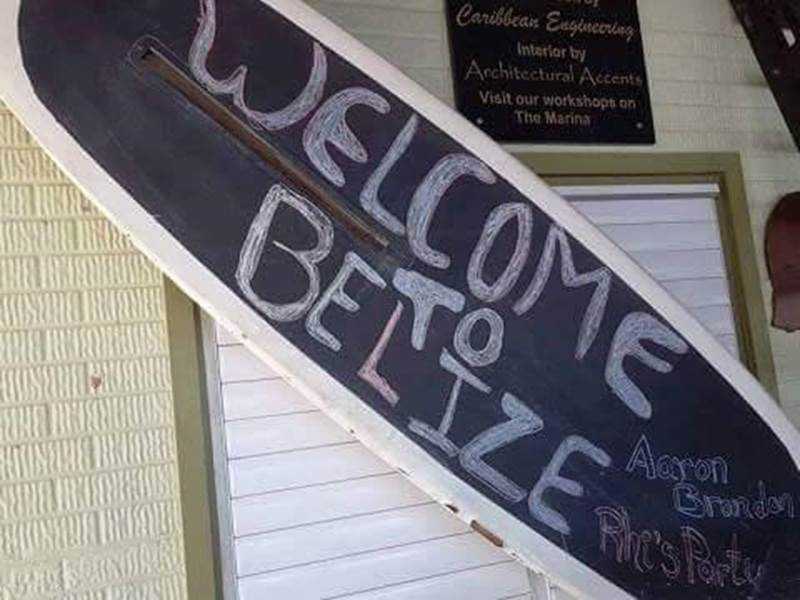 Caribbean Engineering
Interior by
Architectural Accents
Visit our workshops on
The Marina
WELCOME
TO
BELIZE
Aaron
Brandon
Rhi's Party